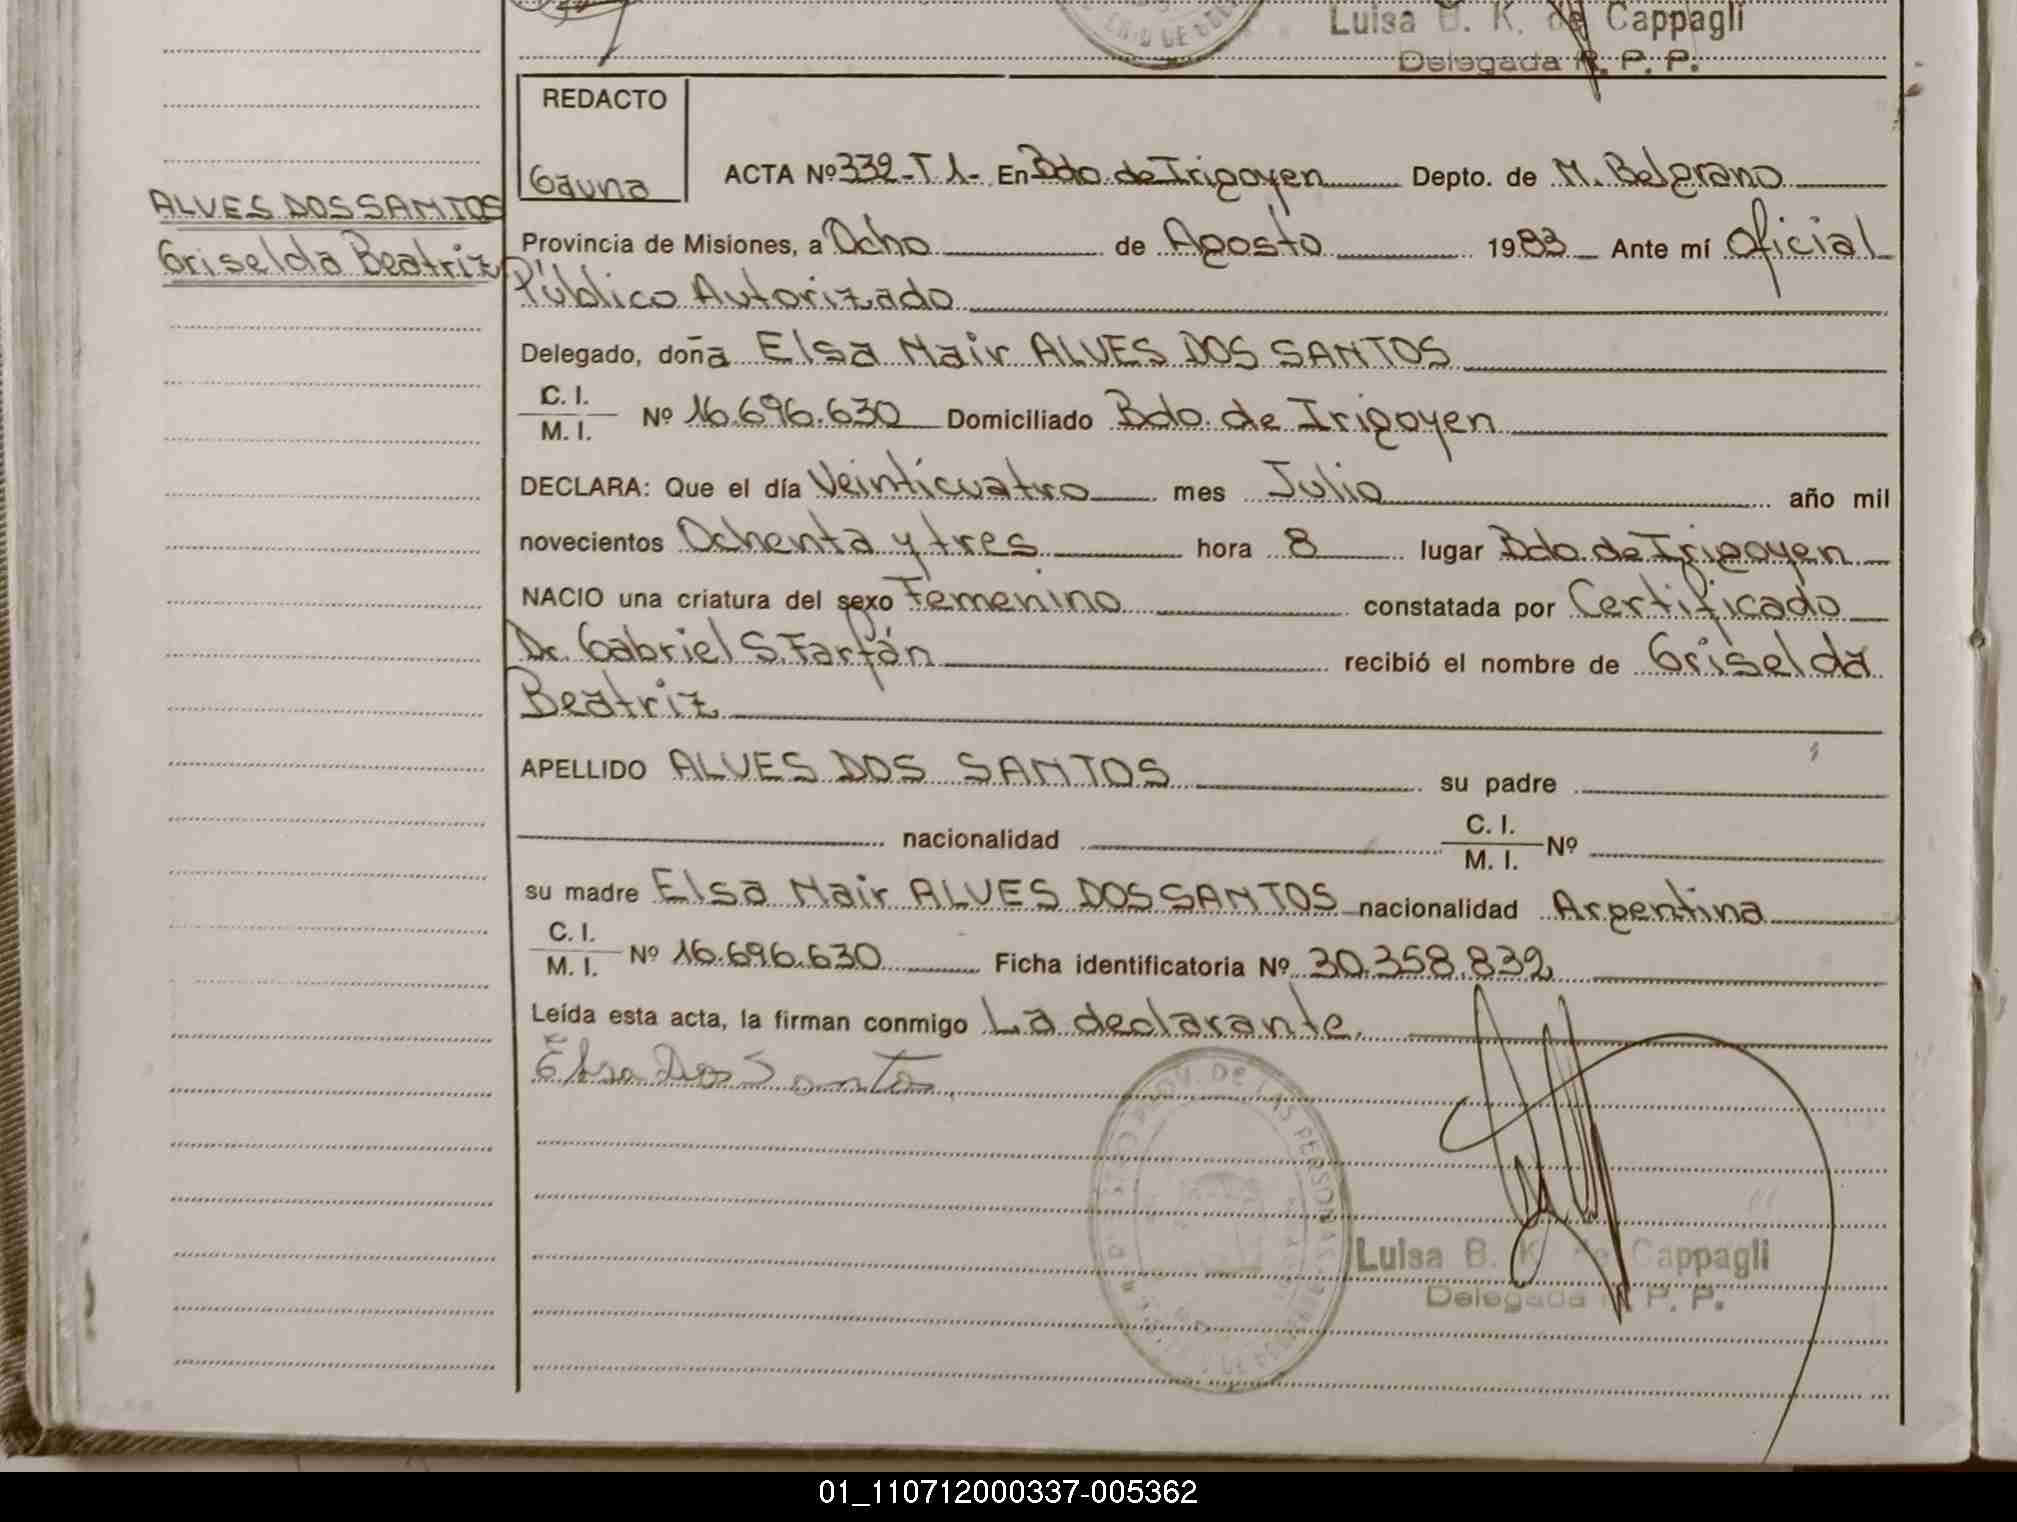 Luisa B. K. de Cappagli
Delegada R. P. P.
REDACTO
Gauna
ACTA Nº 332-T 1- En Bdo. de Irigoyen Depto. de M. Belgrano
ALVES DOS SANTOS
Griselda Beatriz
Provincia de Misiones, a Ocho de Agosto 1983 Ante mí Oficial
Público Autorizado
Delegado, doña Elsa Nair ALVES DOS SANTOS
C. I.
M. I. Nº 16.696.630 Domiciliado Bdo. de Irigoyen
DECLARA: Que el día Veinticuatro mes Julio año mil
novecientos Ochenta y tres hora 8 lugar Bdo. de Irigoyen
NACIO una criatura del sexo Femenino constatada por Certificado
Dr. Gabriel S. Farfán recibió el nombre de Griselda
Beatriz
APELLIDO ALVES DOS SANTOS su padre
nacionalidad C. I. M. I. Nº
su madre Elsa Nair ALVES DOS SANTOS nacionalidad Argentina
C. I.
M. I. Nº 16.696.630 Ficha identificatoria Nº 30.358.832
Leída esta acta, la firman conmigo La declarante.
Elsa Dos Santos
PROV. DE LAS PERSONAS
Luisa B. K. de Cappagli
Delegada R. P. P.
01_110712000337-005362